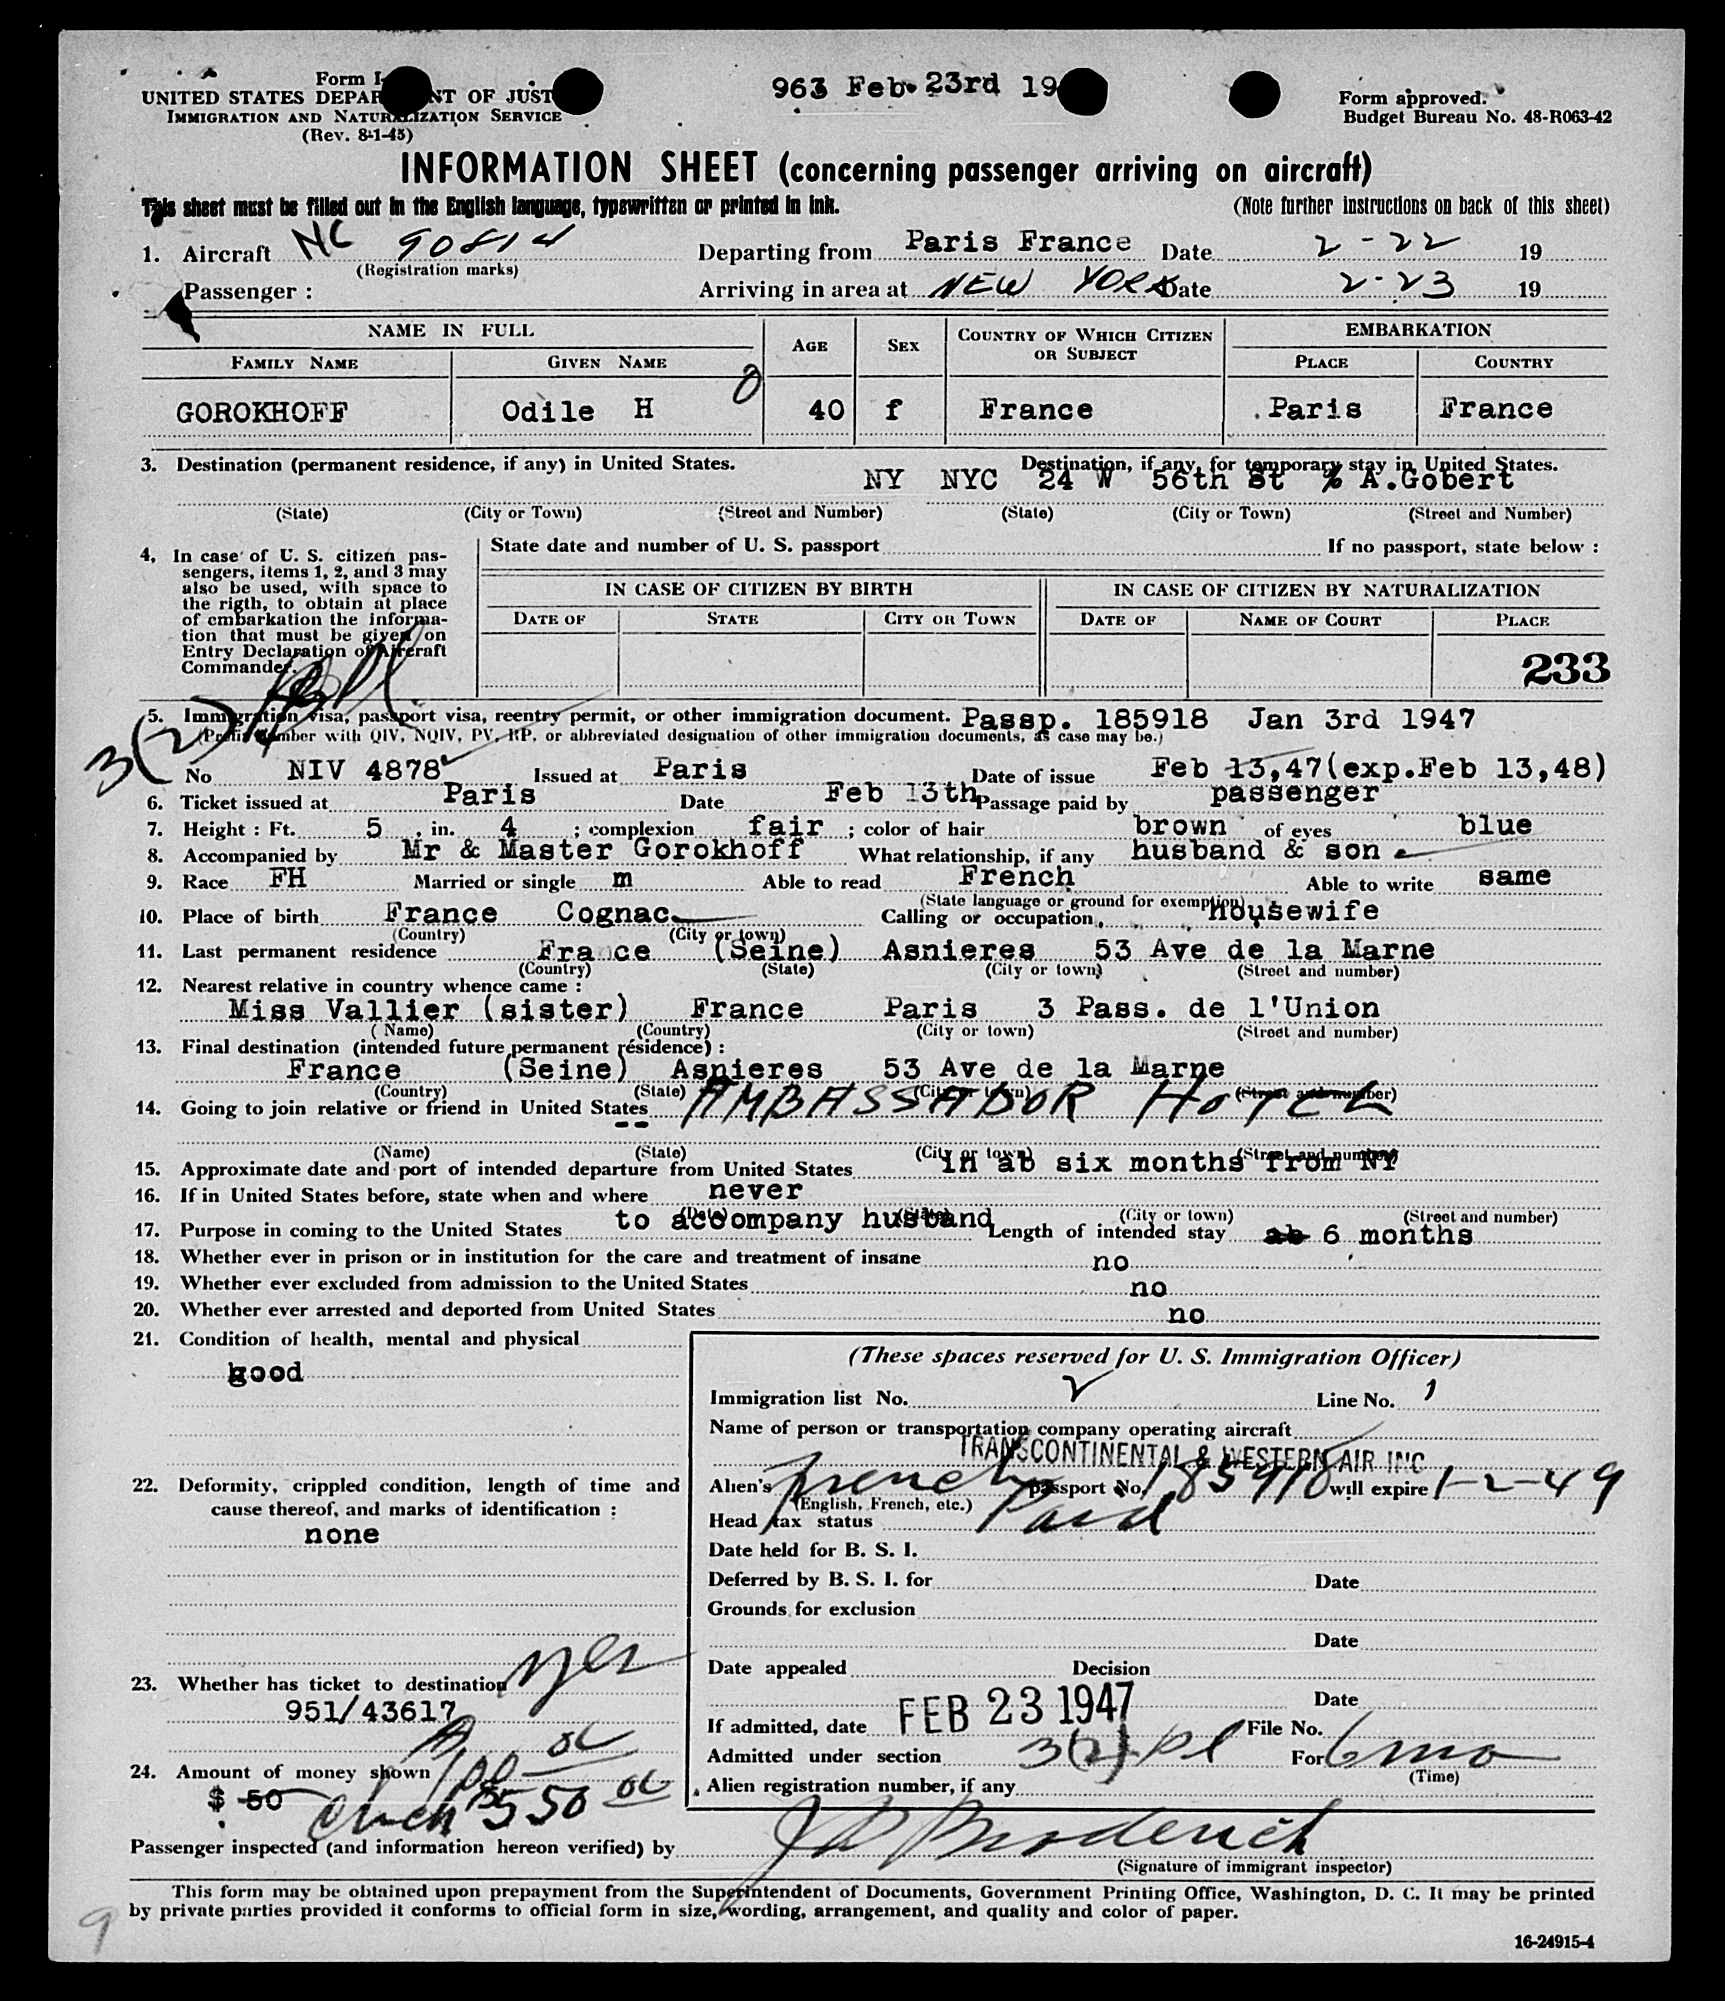 963 Feb. 23rd 19
Form I-
UNITED STATES DEPAR NT OF JUST
IMMIGRATION AND NATURALIZATION SERVICE
(Rev. 8-1-45)
Form approved.
Budget Bureau No. 48-R063-42
INFORMATION SHEET (concerning passenger arriving on aircraft)
This sheet must be filled out in the English language, typewritten or printed in ink. (Note further instructions on back of this sheet)
1. Aircraft NC 90814 Departing from Paris France Date 2-22 19
(Registration marks)
Passenger : Arriving in area at NEW YORK Date 2-23 19
NAME IN FULL AGE SEX COUNTRY OF WHICH CITIZEN OR SUBJECT EMBARKATION
FAMILY NAME GIVEN NAME PLACE COUNTRY
GOROKHOFF Odile H 40 f France Paris France
3. Destination (permanent residence, if any) in United States. Destination, if any, for temporary stay in United States.
NY NYC 24 W 56th St % A.Gobert
(State) (City or Town) (Street and Number) (State) (City or Town) (Street and Number)
4. In case of U. S. citizen pas-
sengers, items 1, 2, and 3 may
also be used, with space to
the rigth, to obtain at place
of embarkation the informa-
tion that must be given on
Entry Declaration of Aircraft
Commander.
State date and number of U. S. passport If no passport, state below :
IN CASE OF CITIZEN BY BIRTH IN CASE OF CITIZEN BY NATURALIZATION
DATE OF STATE CITY OR TOWN DATE OF NAME OF COURT PLACE
233
5. Immigration visa, passport visa, reentry permit, or other immigration document. Passp. 185918 Jan 3rd 1947
(Prefix number with QIV, NQIV, PV, RP, or abbreviated designation of other immigration documents, as case may be.)
3(2)
No NIV 4878 Issued at Paris Date of issue Feb 13,47(exp.Feb 13,48)
6. Ticket issued at Paris Date Feb 13th Passage paid by passenger
7. Height : Ft. 5 , in. 4 ; complexion fair ; color of hair brown of eyes blue
8. Accompanied by Mr & Master Gorokhoff What relationship, if any husband & son
9. Race FH Married or single m Able to read French Able to write same
(State language or ground for exemption)
10. Place of birth France Cognac Calling or occupation housewife
(Country) (City or town)
11. Last permanent residence France (Seine) Asnieres 53 Ave de la Marne
(Country) (State) (City or town) (Street and number)
12. Nearest relative in country whence came :
Miss Vallier (sister) France Paris 3 Pass. de l'Union
(Name) (Country) (City or town) (Street and number)
13. Final destination (intended future permanent résidence) :
France (Seine) Asnieres 53 Ave de la Marne
(Country) (State) (City or town) (Street and number)
14. Going to join relative or friend in United States AMBASSADOR HOTEL
--
(Name) (State) (City or town) (Street and number)
15. Approximate date and port of intended departure from United States in ab six months from NY
16. If in United States before, state when and where never
(Date) (State) (City or town) (Street and number)
17. Purpose in coming to the United States to accompany husband Length of intended stay ab 6 months
18. Whether ever in prison or in institution for the care and treatment of insane no
19. Whether ever excluded from admission to the United States no
20. Whether ever arrested and deported from United States no
21. Condition of health, mental and physical
good
22. Deformity, crippled condition, length of time and
cause thereof, and marks of identification :
none
23. Whether has ticket to destination yes
951/43617
24. Amount of money shown 100 00
$ 50 check $550 00
(These spaces reserved for U. S. Immigration Officer)
Immigration list No. 2 Line No. 1
Name of person or transportation company operating aircraft
TRANSCONTINENTAL & WESTERN AIR INC
Alien's french passport No. 185918 will expire 1-2-49
(English, French, etc.)
Head tax status Paid
Date held for B. S. I.
Deferred by B. S. I. for Date
Grounds for exclusion
Date
Date appealed Decision
Date
If admitted, date FEB 23 1947 File No.
Admitted under section 3(2) pl For 6 mo
(Time)
Alien registration number, if any
Passenger inspected (and information hereon verified) by J Broderick
(Signature of immigrant inspector)
This form may be obtained upon prepayment from the Superintendent of Documents, Government Printing Office, Washington, D. C. It may be printed
by private parties provided it conforms to official form in size, wording, arrangement, and quality and color of paper.
9
16-24915-4